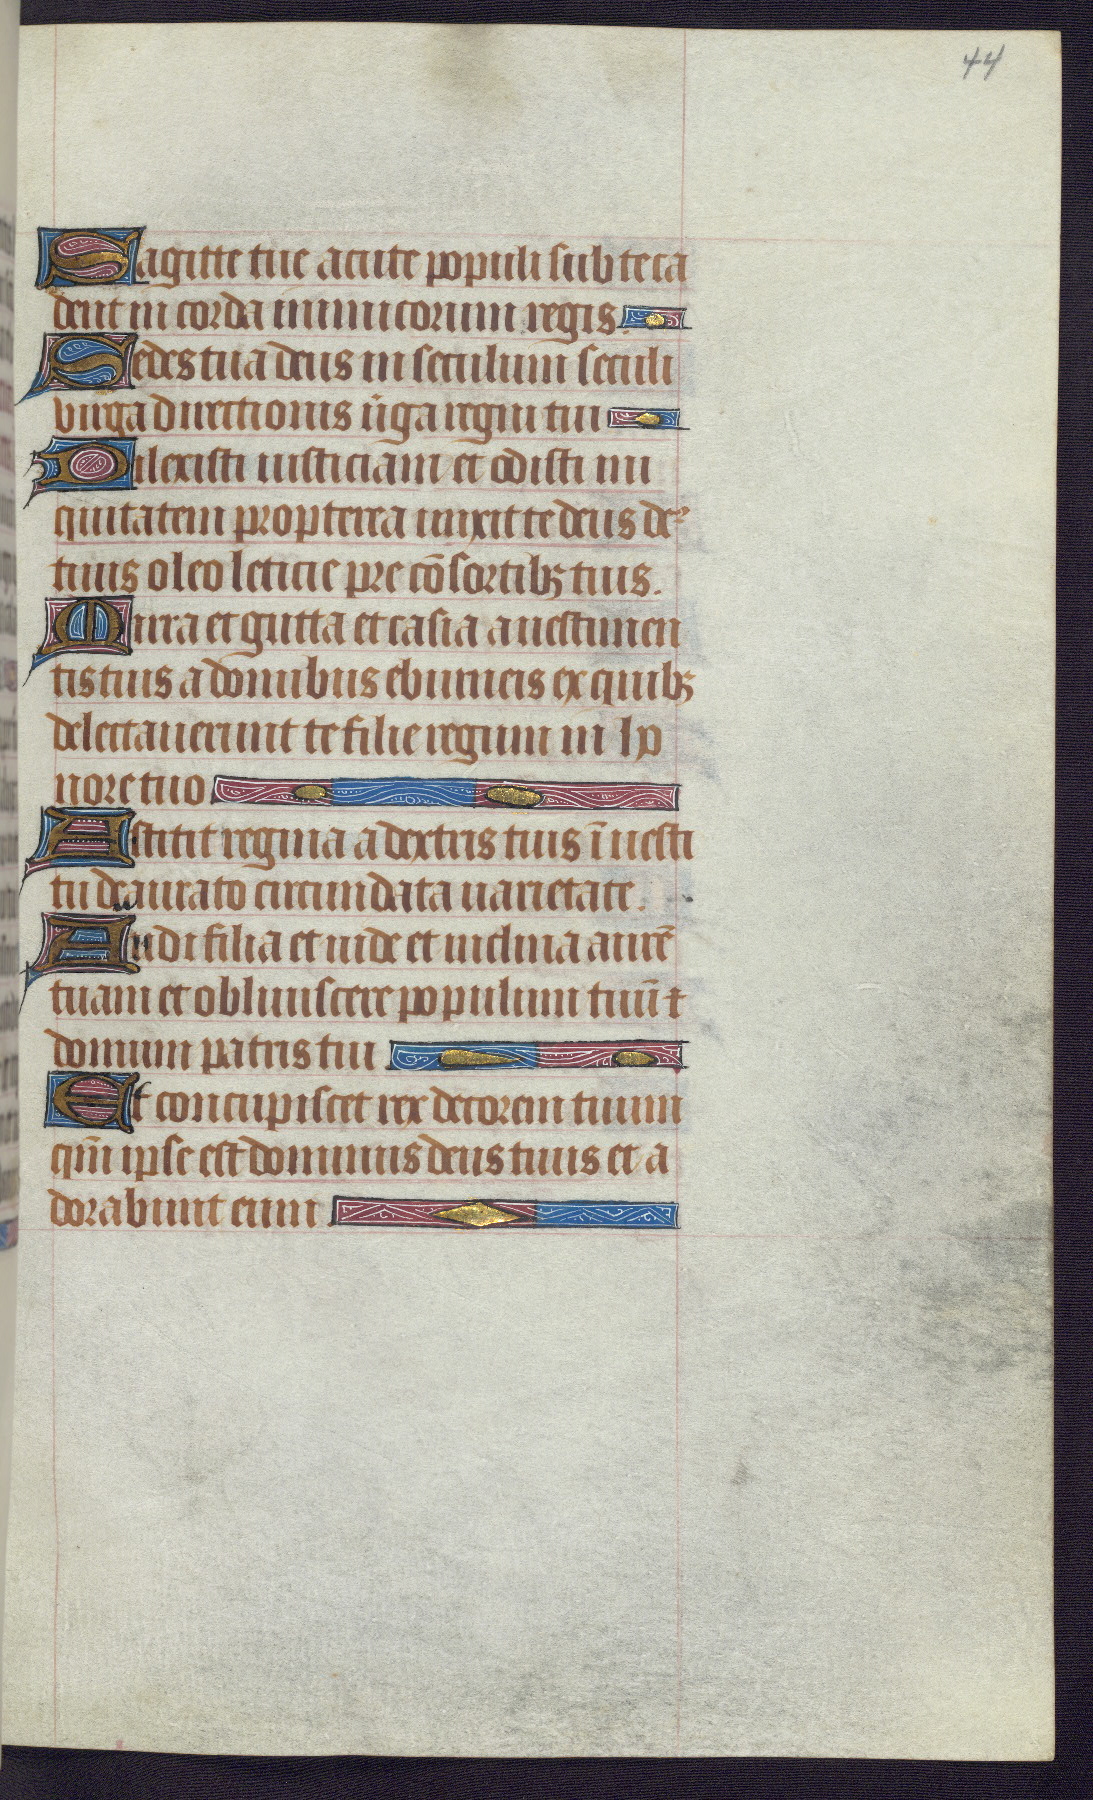 44
Sagitte tue acute populi sub te ca
dent in corda inimicorum regis.
Sedes tua deus in seculum seculi
virga directionis ũga regni tui
Dilexisti iusticiam et odisti ini
quitatem propterea unxit te deus de᷒
tuus oleo leticie pre cõsortibꝫ tuis.
Mirra et gutta et casia a uestimen
tis tuis a domibus eburneis ex quibꝫ
delectauerunt te filie regum in ho
nore tuo
Astitit regina a dextris tuis ĩ uesti
tu deaurato circundata uarietate.
Audi filia et uide et inclina aurẽ
tuam et obliuiscere populum tuũ ⁊
domum patris tui
Et concupiscet rex decorem tuum
qm̃ ipse est dominus deus tuus et a
dorabunt eum